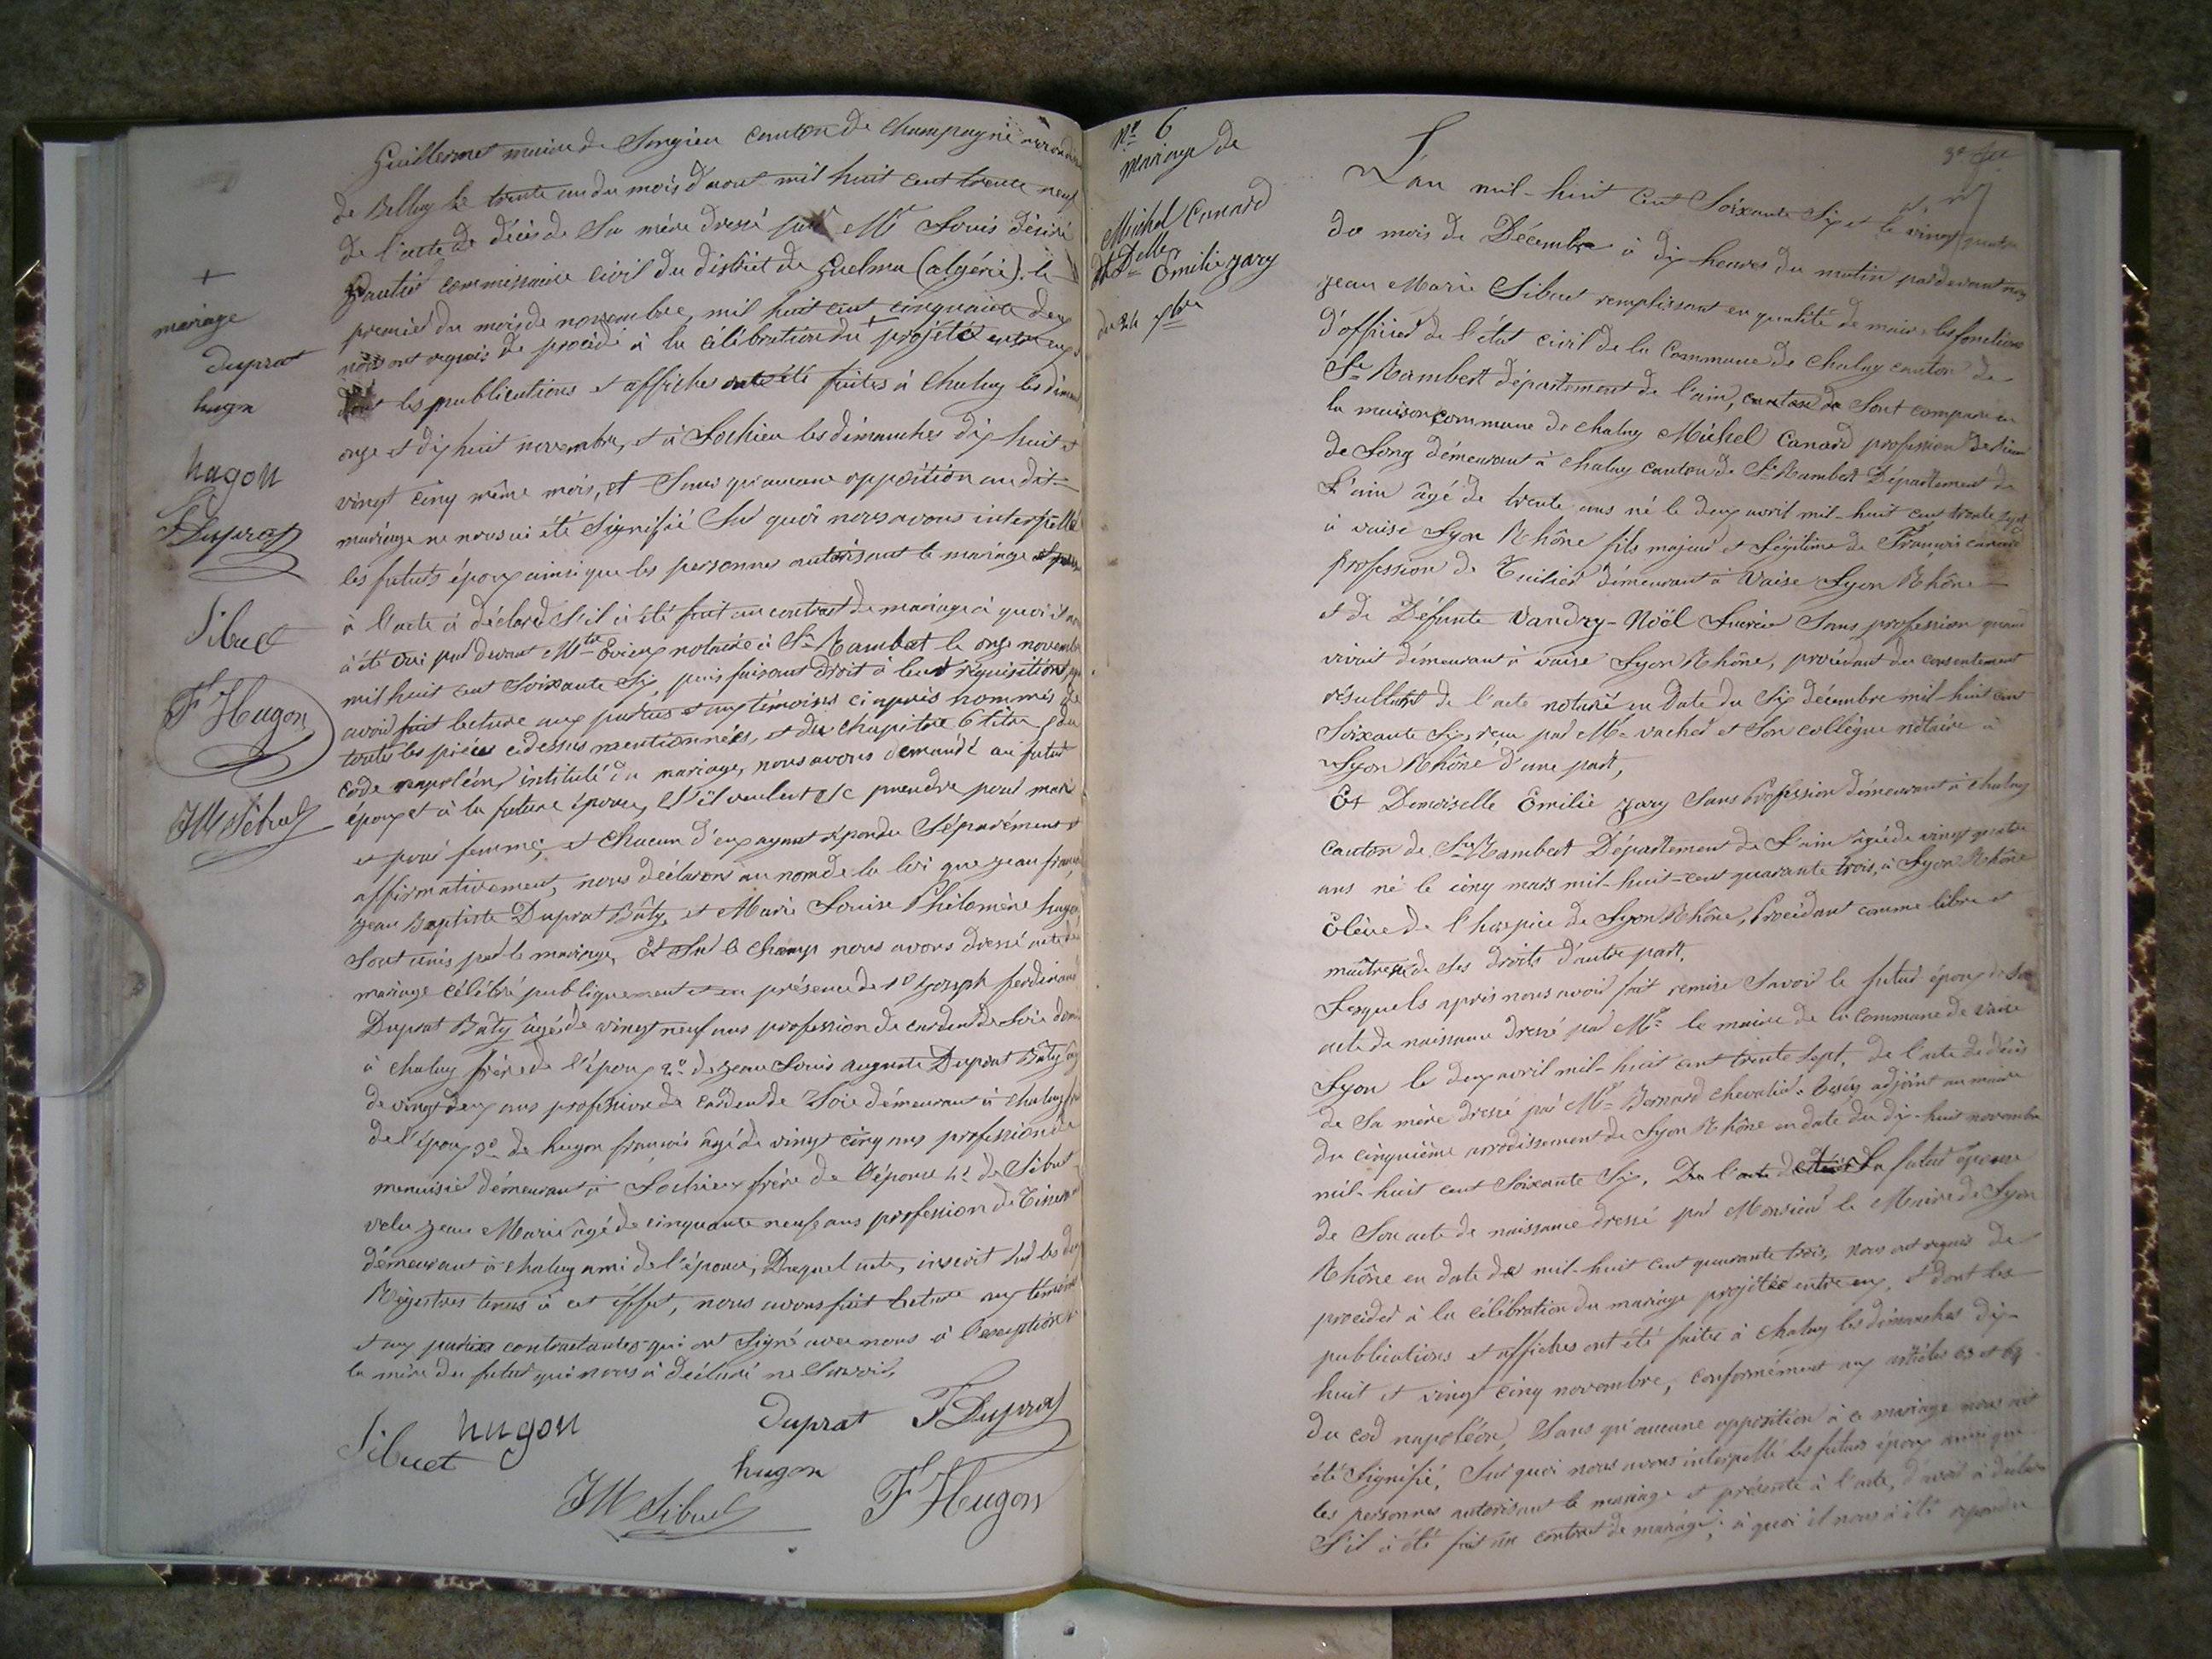 Guillermet maire de Songieu canton de Champagne
de Belley le trente un du mois d'aout mil huit cent trente neuf
de l'acte de décès de Sa mère dressé par Mr Louis Désiré
Gautier commissaire civil du district de Guelma (algérie). le
premier du mois de novembre, mil huit cent cinquante deux
nous ont requis de procédé à la célébration du + projeté entre eux
dont les publications et affiches ont été faites à Chaley les
onze et dix huit novembre, et à Lochieu les dimanches dix huit et
vingt cinq même mois, et Sans qu'aucune opposition au dit
mariage ne nous ai été Signifié Sur quoi nous avons interpellé
les futurs époux ainsi que les personnes autorisant le mariage
à l'acte à déclaré S'il à été fait un contrat de mariage à quoi il
à été oui par devant Mtre notaire à St Rambert le onze novembre
mil huit cent Soixante Six, puis faisant droit à leur réquisition
avoir fait lecture aux parties et aux témoins ci après nommés de
toute les pièces ci dessus mentionnées, et du chapitre 6 titre
code napoléon, intitulé du mariage, nous avons demandé au futur
époux et à la future épouse, S'il veulent Se prendre pour mari
et pour femme, et chacun d'eux ayant répondu Séparément et
affirmativement, nous déclarons au nom de la loi que Jean
Jean Baptiste Duprat Bâty, et Marie Louise Philomène hugon
Sont unis par le mariage, Et Sur le champ nous avons dressé acte de
mariage célébré publiquement et en présence de 1º Joseph ferdinand
Duprat Bâty âgé de vingt neuf ans profession de cardeur de Soie
à chaley frère de l'époux 2º de Jean Louis auguste Duprat Bâty
de vingt deux ans profession de Cardeur de Soie démeurant à chaley
de l'époux 3º de hugon françois âgé de vingt cinq ans profession de
menuisier démeurant à Lochieu frère de l'épouse 4º de Sibuet
Jean Marie âgé de cinquante neuf ans profession de Tisserand
démeurant à chaley ami de l'épouse, Duquel acte, inscrit Sur les
Régistres tenus à cet éffet, nous avons fait lecture aux témoins
et aux parties contractantes qui ont Signé avec nous à l'exception
la mère du futur qui nous à déclaré ne Savoir.
Sibuet hugon Duprat F Duprat
JM Sibuet hugon F Hugon
+
mariage
duprat
hugon
hugon
F Duprat
Sibuet
F Hugon
JM Sibuet
Nº 6
mariage de
Michel Canard
et Delle
Emilie Jary
du 24 xbre
L'an mil-huit cent Soixante Six et le vingt quatre
du mois de Décembre à dix heures du matin pardevant nous
Jean Marie Sibuet remplissant en qualité de maire les fonctions
d'officier de l'état civil de la Commune de Chaley canton de
St Rambert département de l'ain, canton de Sont comparu en
la maison commune de chaley Michel Canard profession de
de Long démeurant à chaley canton de St Rambert Département de
L'ain âgé de trente ans né le deux avril mil-huit cent trente Sept
à vaise Lyon Rhône fils majeur et Légitime de François canard
profession de Tuilier démeurant à Vaise Lyon Rhône
et de Défunte Vandry-Nöel Lucrèce Sans profession quand
vivait démeurant à vaise Lyon Rhône, procédant du consentement
résultant de l'acte notarié en Date du Six décembre mil-huit cent
Soixante Six, reçu par Me vachon et Son collègue notaire à
Lyon Rhône d'une part,
Et Demoiselle Emilie Jary Sans Profession démeurant à chaley
canton de St Rambert Département de L'ain âgée de vingt quatre
ans né le cinq mars mil-huit-cent quarante trois, à Lyon Rhône
Elève de l'hospice de Lyon Rhône, Procédant comme libre et
maitresse de Ses droits d'autre part.
Lesquels après nous avoir fait remise Savoir le futur époux de Son
acte de naissance dressé par Mr le maire de la Commune de Vaise
Lyon le deux avril mil-huit cent trente Sept, de l'acte de décès
de Sa mère dressé par Mr Bernard Chevalier adjoint au maire
du cinquième arrodissement de Lyon Rhône en date du dix-huit novembre
mil-huit cent Soixante Six. De l'acte La futur épouse
de Son acte de naissance dressé par Monsieur le Maire de Lyon
Rhône en date de mil-huit cent quarante trois, nous ont requis de
procéder à la célébration du mariage projeté entre eux, et dont les
publications et affiches ont été faites à Chaley les dimanches dix-
huit et vingt cinq novembre, conformément aux articles 63 et 64
du cod napoléon, Sans qu'aucune opposition à ce mariage nous ait
été Signifié, Sur quoi nous avons interpellé les futurs époux ainsi que
les personnes autorisant le mariage et présente à l'acte, d'avoir à déclarer
S'il à été fait un contrat de mariage, à quoi il nous à été répondu